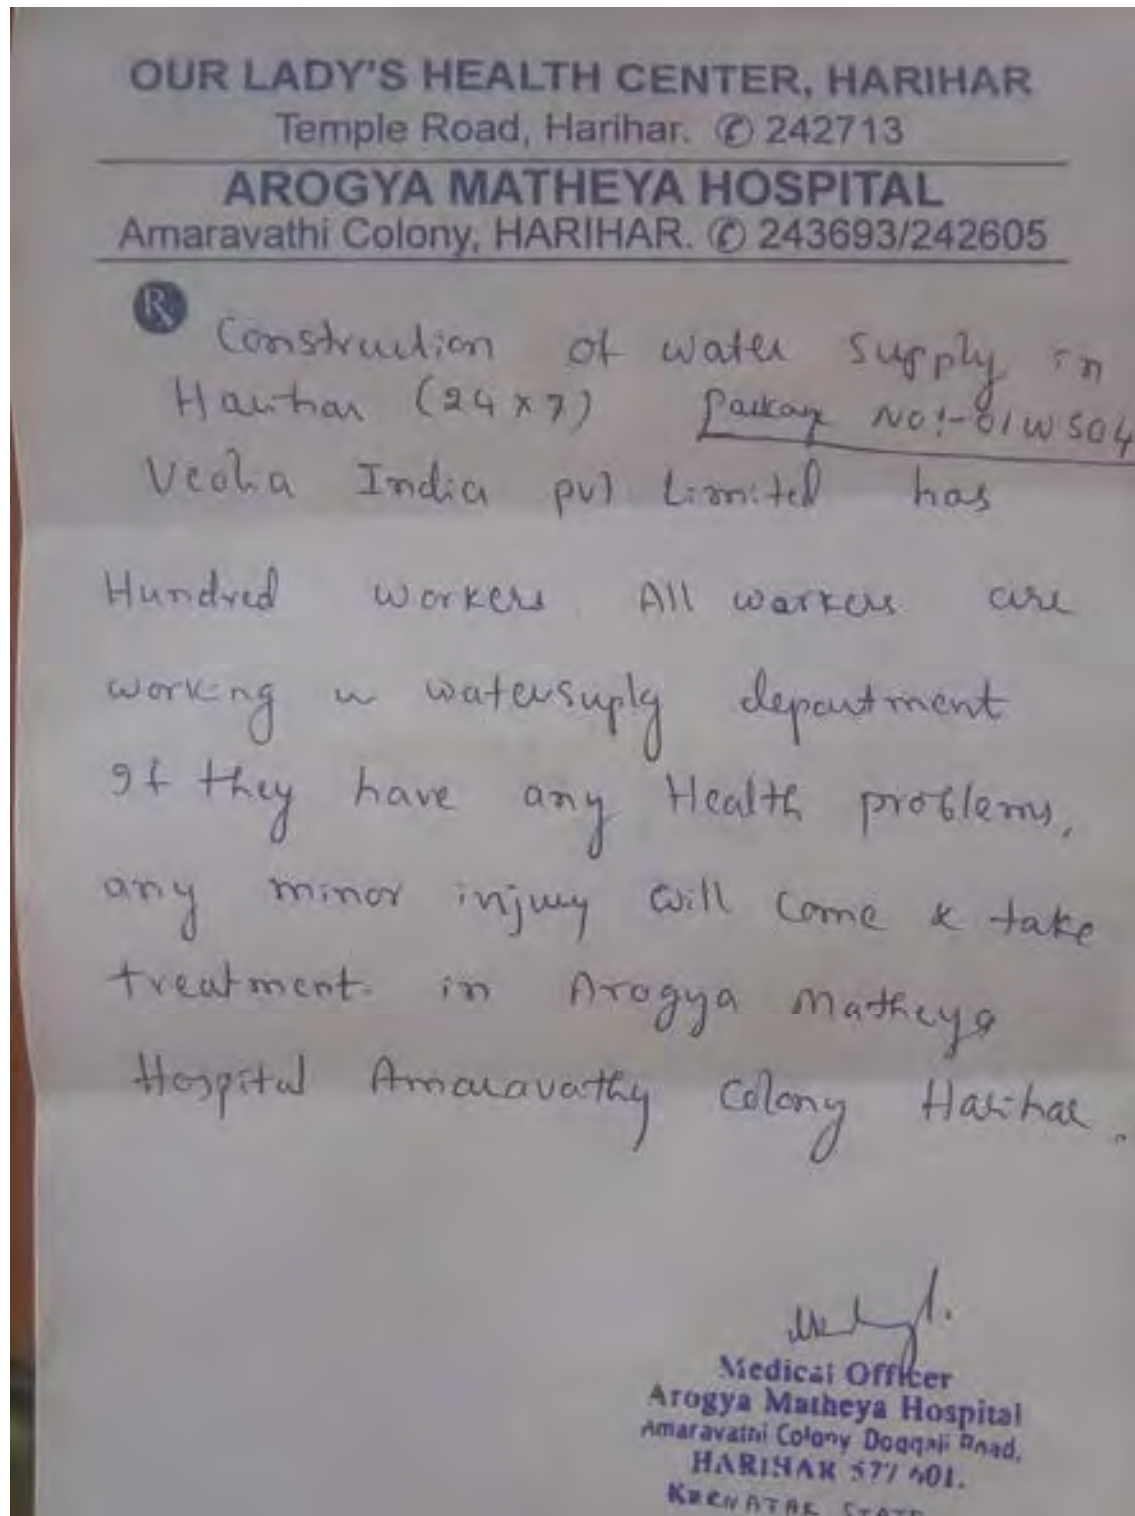 OUR LADY'S HEALTH CENTER, HARIHAR
Temple Road, Harihar. ✆ 242713
AROGYA MATHEYA HOSPITAL
Amaravathi Colony, HARIHAR. ✆ 243693/242605
Rx
Construction of water supply in
Harihar (24 x 7) Package No:-01WS04
Veolia India pvt Limited has
Hundred workers. All workers are
working in watersuply department
If they have any Health problems,
any minor injury will come & take
treatment. in Arogya Matheya
Hospital Amaravathy Colony Harihar.
Medical Officer
Arogya Matheya Hospital
Amaravathi Colony Doggali Road,
HARIHAR 577 601.
KARNATAK STATE